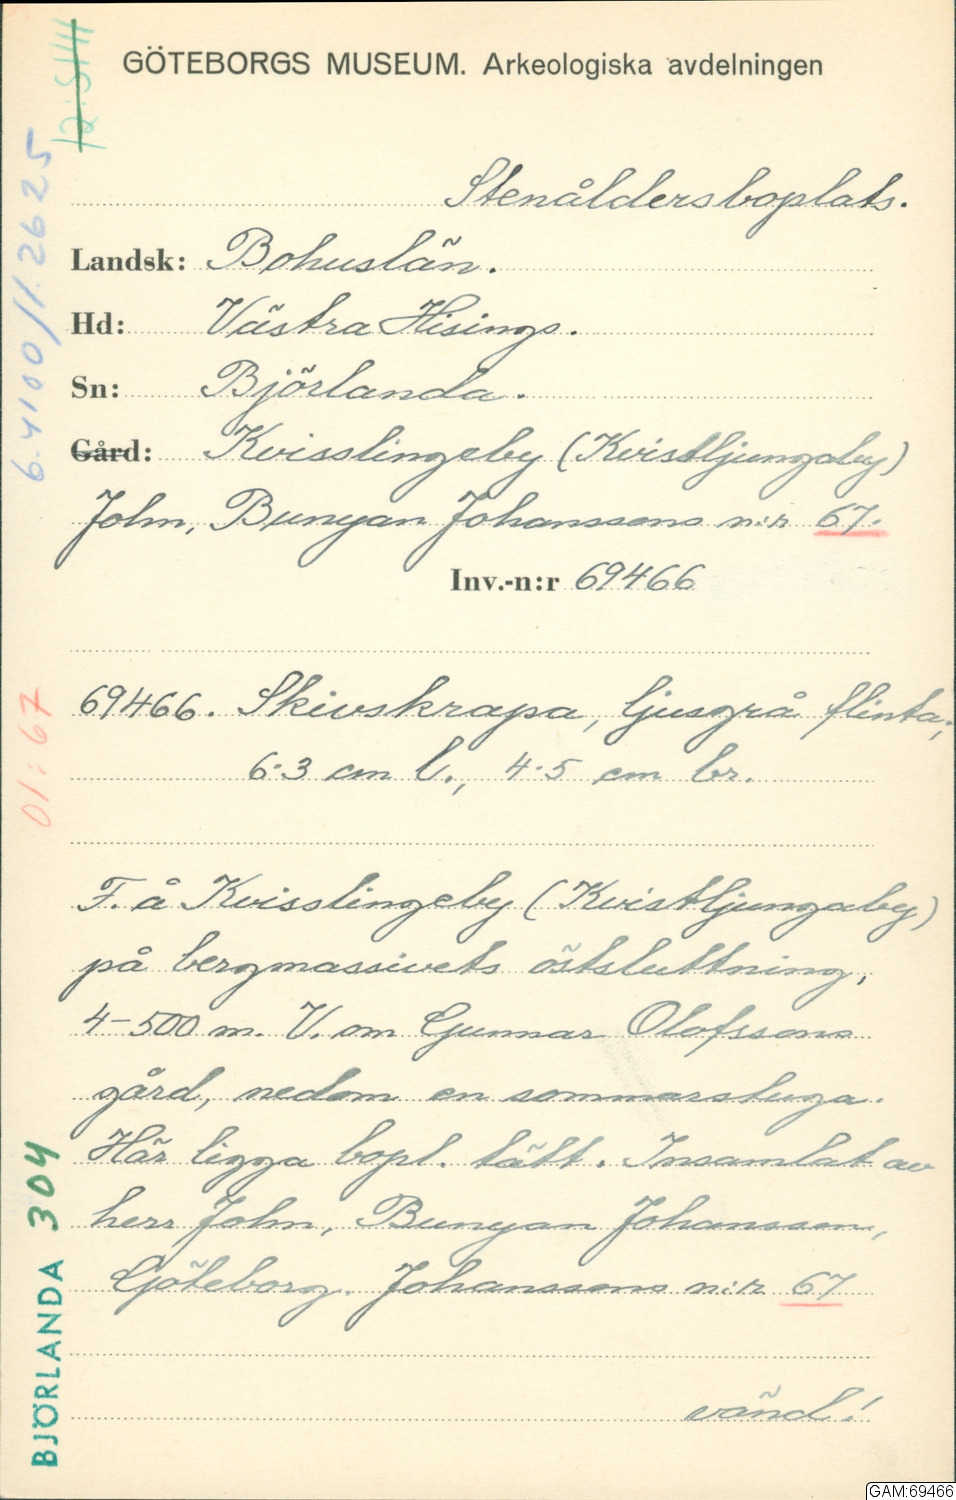 GÖTEBORGS MUSEUM. Arkeologiska avdelningen
Stenåldersboplats.
Landsk: Bohuslän.
Hd: Västra Hisings.
Sn: Björlanda.
Gård: Kvisslingeby (Kvistljungaby)
John, Bunyan Johanssons n:r 67.
Inv.-n:r 69466
69466. Skivskrapa, ljusgrå flinta,
6.3 cm l., 4.5 cm br.
F. å Kvisslingeby (Kvistljungaby)
på bergmassivets östsluttning,
4-500 m. V. om Gunnar Olofssons
gård, nedom en sommarstuga.
Här ligga bopl. tätt. Insamlat av
herr John, Bunyan Johansson,
Göteborg. Johanssons n:r 67
vänd!
6.4100/1.2625
01:67
BJÖRLANDA 304
GAM:69466